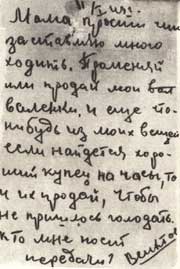 Мама, прости что
заставляю много
ходить. Променяй
или продай мои вал
валенки, и еще что-
нибудь из моих вещей
если найдется хоро-
ший купец на часы, то
и их продай, чтобы
не пришлось голодать.
Кто мне носит
передачи? Виктор